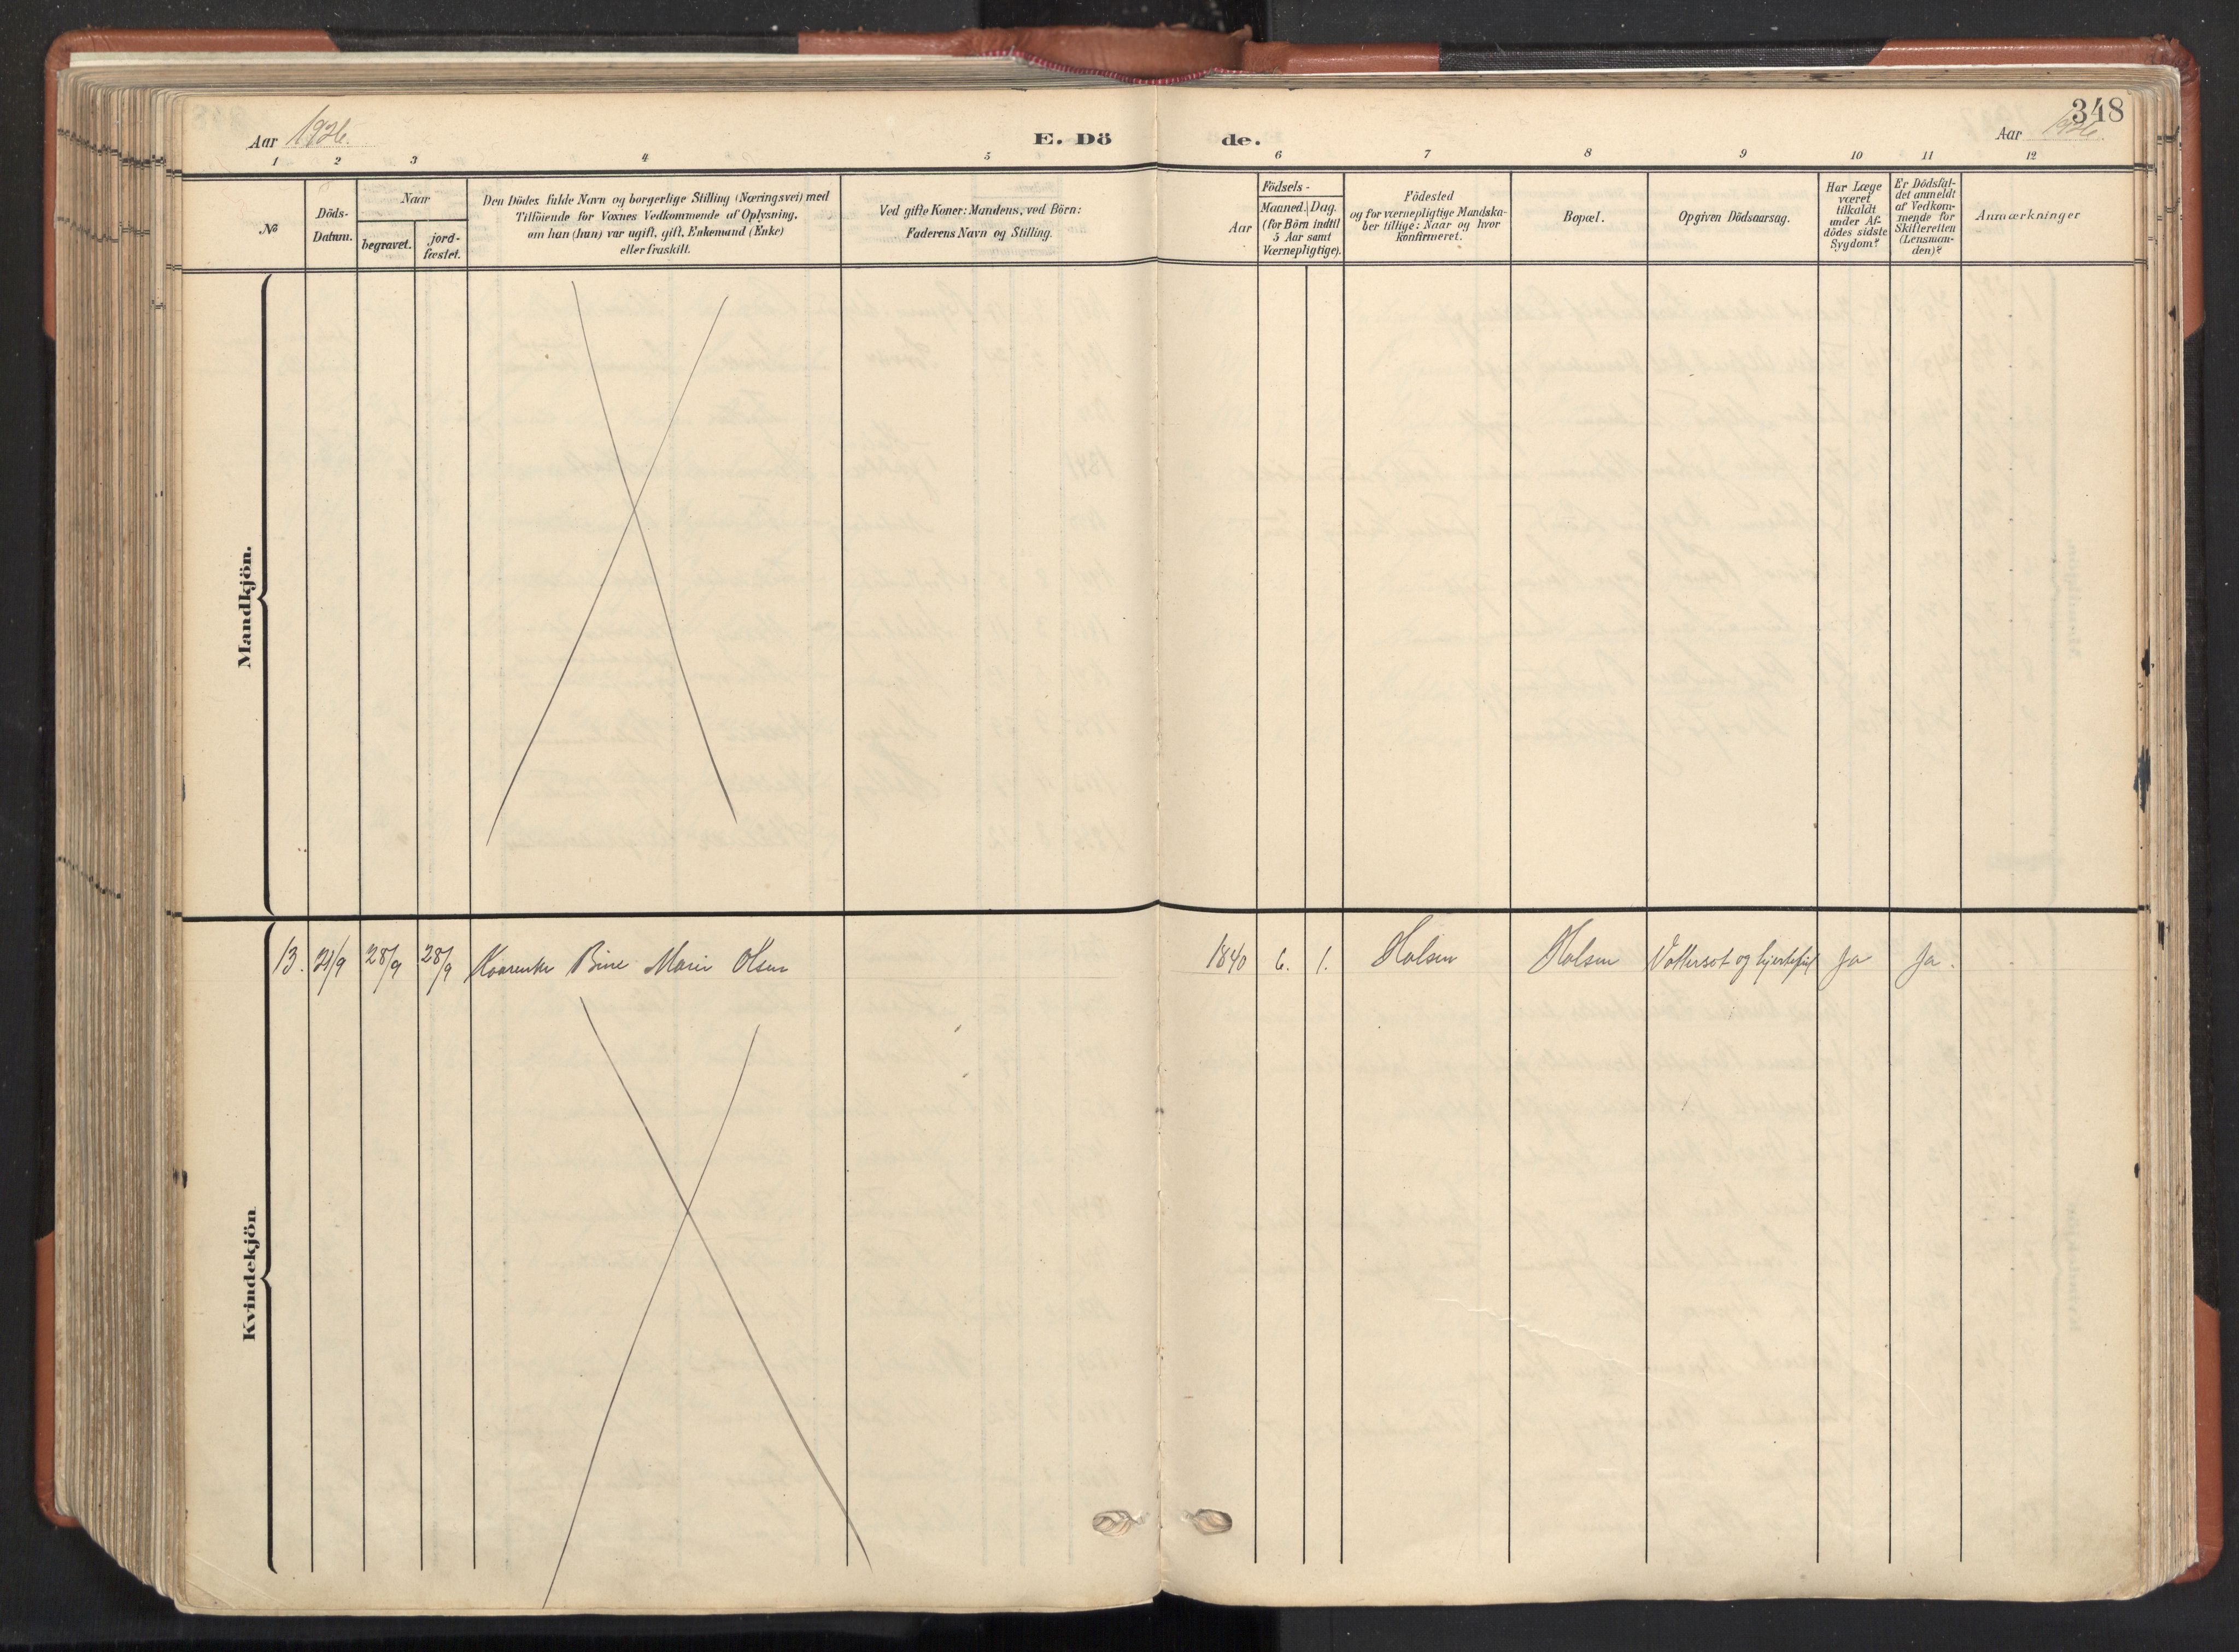 348
Aar 1926.
E. Dö
de.
Aar 1926.
1 2 3 4 5 6 7 8 9 10 11 12
№
Döds-
Datum.
Naar
begravet.
jord-
fæstet.
Den Dödes fulde Navn og borgerlige Stilling (Næringsvei) med
Tilföiende for Voxnes Vedkommende af Oplysning,
om han (hun) var ugift, gift, Enkemand (Enke)
eller fraskilt.
Ved gifte Koner: Mandens, ved Börn:
Faderens Navn og Stilling.
Födsels-
Aar
Maaned. Dag.
(for Börn indtil
5 Aar samt
Værnepligtige).
Födested
og for værnepligtige Mandska-
ber tillige: Naar og hvor
Konfirmeret.
Bopæl.
Opgiven Dödsaarsag.
Har Læge
været
tilkaldt
under Af-
dödes sidste
Sygdom?
Er Dödsfal-
det anmeldt
af Vedkom-
mende for
Skifteretten
(Lensman-
den)?
Anmærkninger
Mandkjön.
Kvindekjön
13. 21/9 28/9 28/9 Kaarenke Bine Marie Olsen 1840 6. 1. Halsen Halsen Vattersot og hjertefeil Ja Ja.